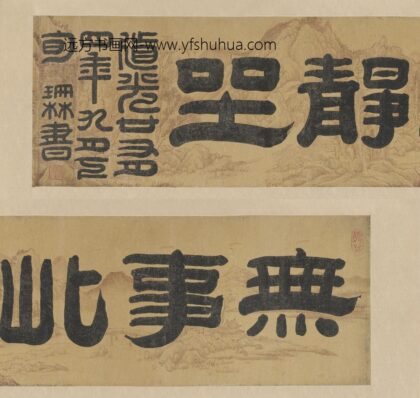 远方书画网-www.yfshuhua.com
靜坐
道光廿又
四年九月
珊林書
無事此